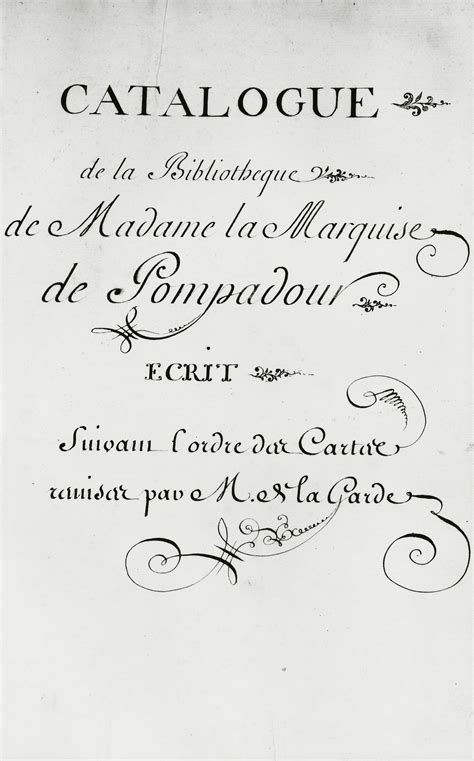 CATALOGUE
de la Bibliotheque
de Madame la Marquise
de Pompadour
ECRIT
Suivant l'ordre des Cartes
remises par M. de la Garde